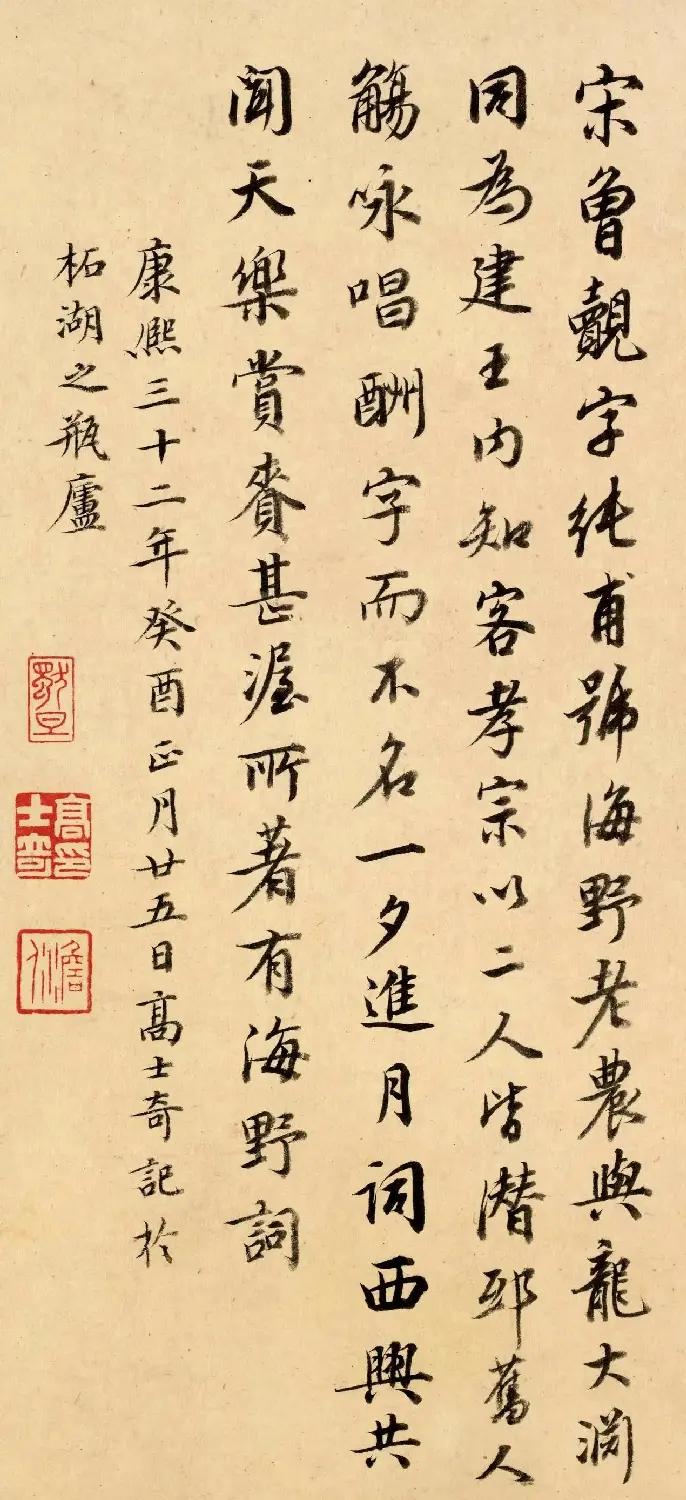 宋曾覿字純甫號海野老農與龍大淵
同為建王内知客孝宗以二人皆潛邸舊人
觴咏唱酬字而不名一夕進月詞西興共
聞天樂賞賚甚渥所著有海野詞
康熙三十二年癸酉正月廿五日高士奇記於
柘湖之瓶廬
高士奇印
澹人